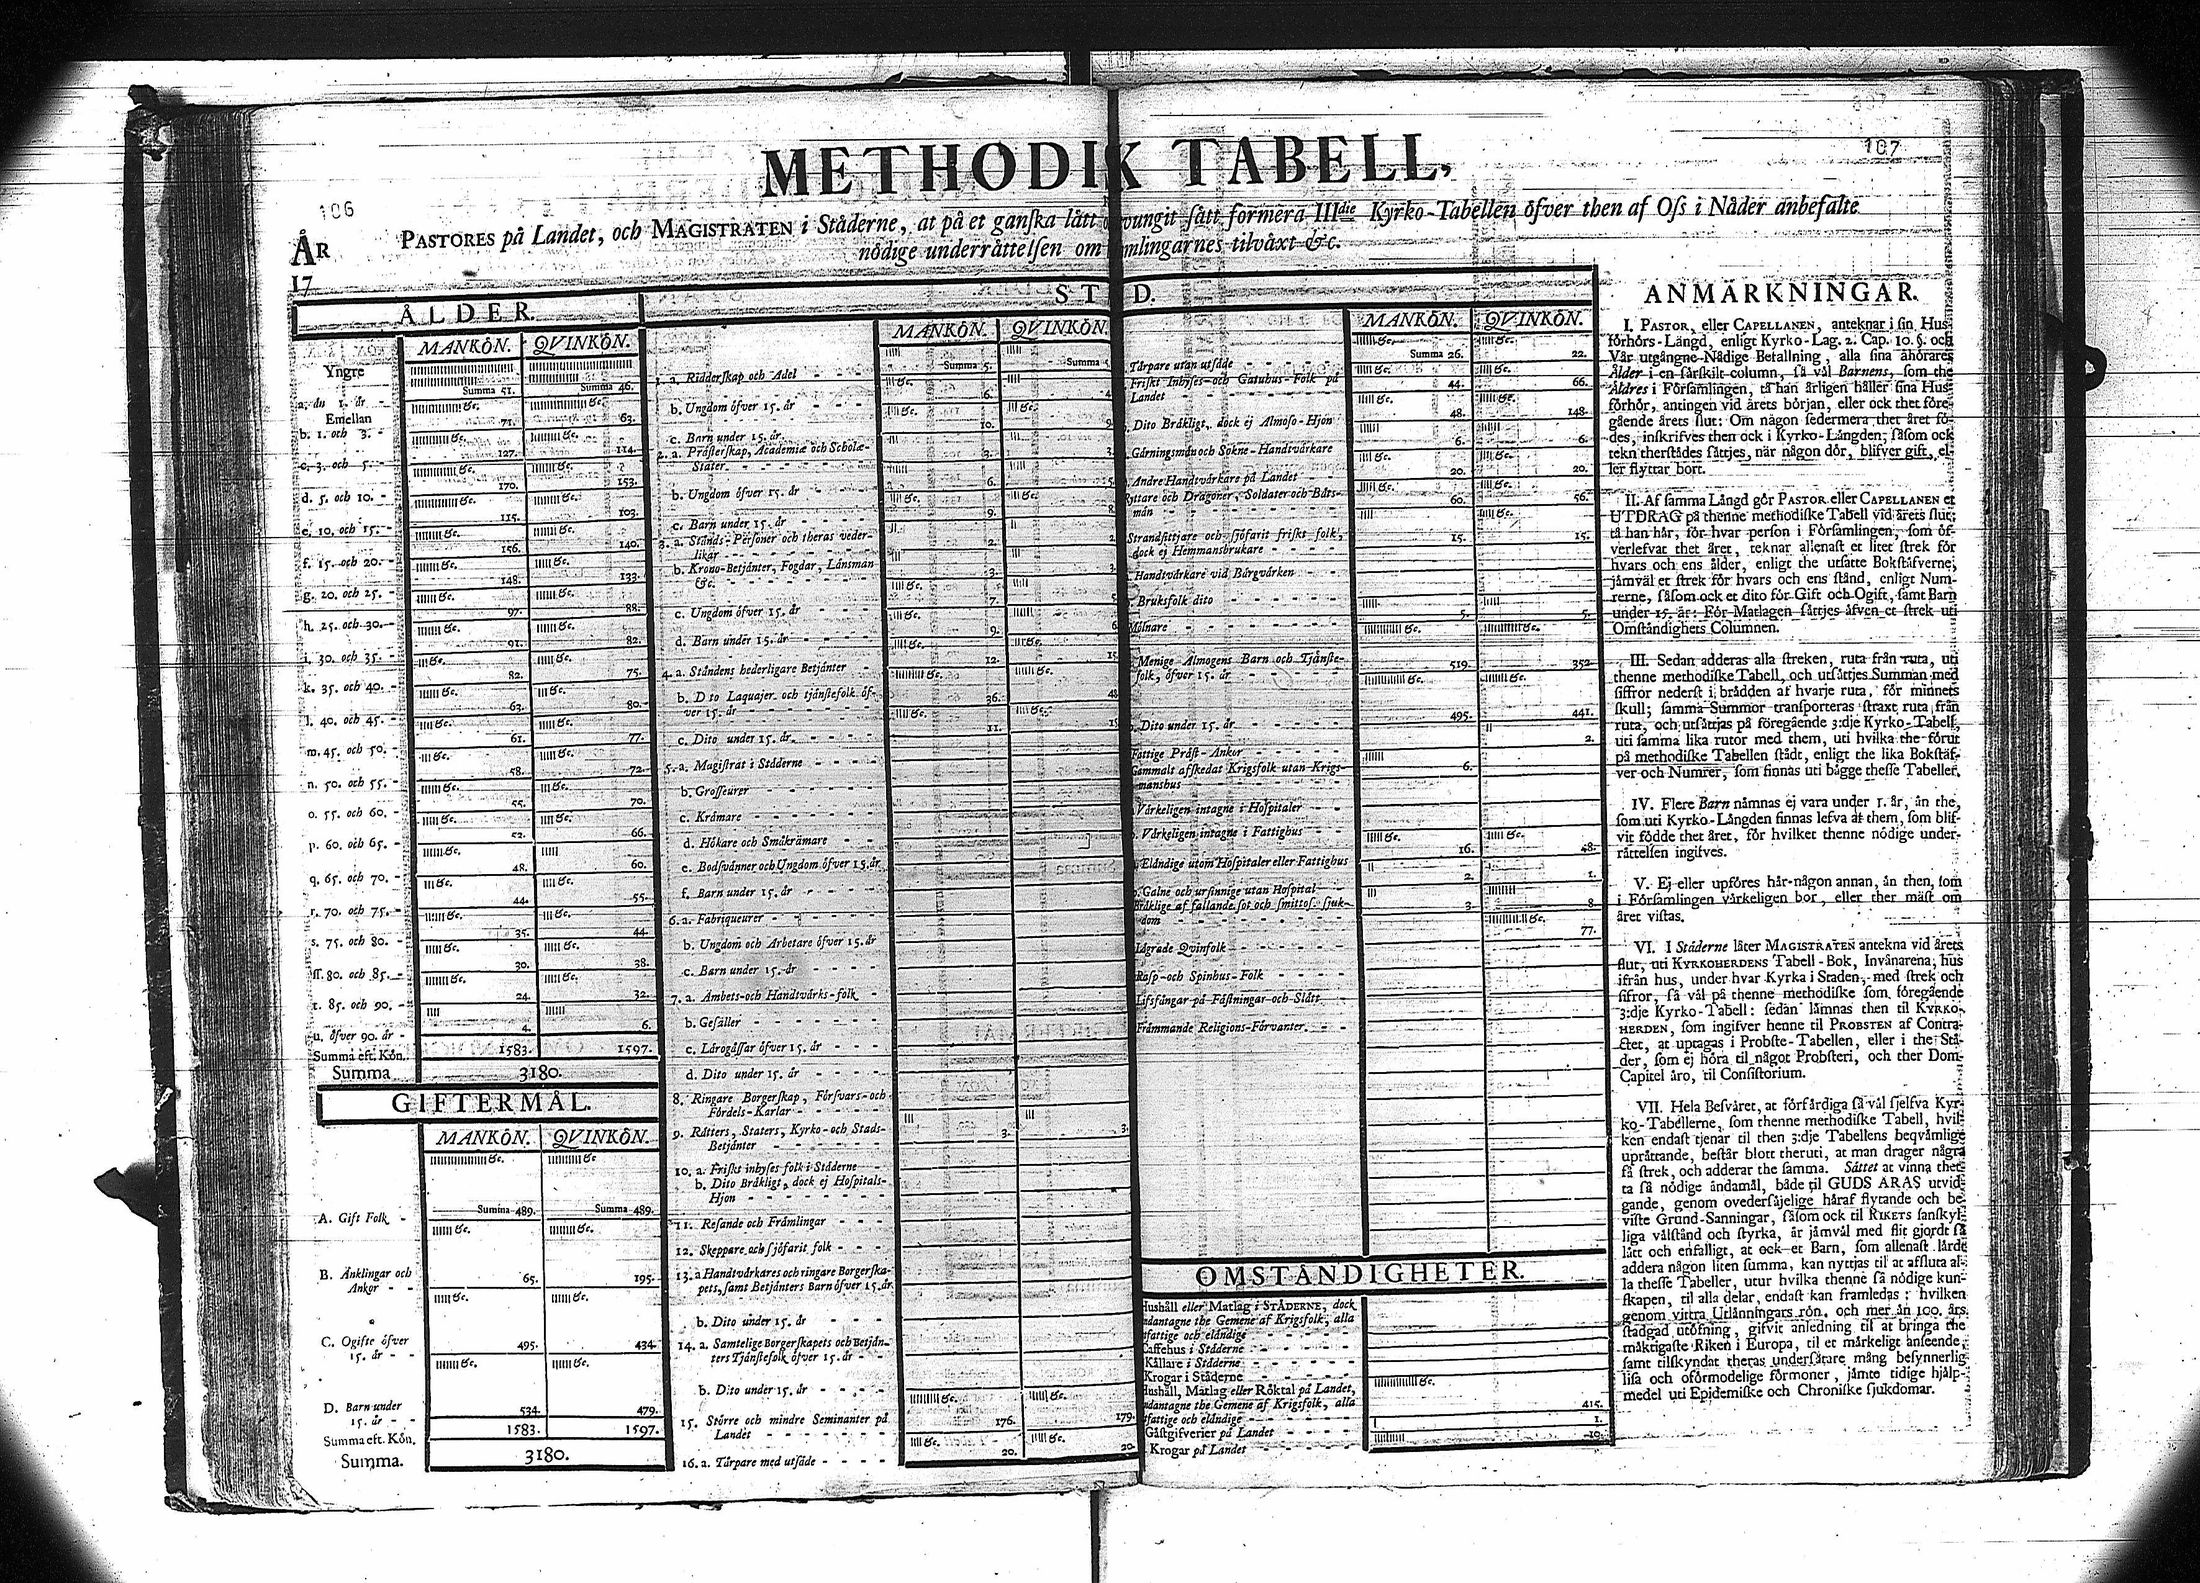 106
107
METHODIK TABELL,
ÅR
17
PASTORES på Landet, och MAGISTRATEN i Städerne, at på et ganſka lått sått formera IIIdie Kyrko-Tabellen ôfver then af Oſs i Nåder anbefalte
nôdige underråttelſen om tilvåxt &c.
ÅLDER.
MANKÔN. QVINKÔN.
Yngre
Summa 51. Summa 46.
a. ån 1. år
Emellan
b. 1. och 3. 71. 63.
c. 3. och 5. 127. 114.
d. 5. och 10. 170. 153.
e. 10. och 15. 115. 103.
f. 15. och 20. 156. 140.
g. 20. och 25. 148. 133.
h. 25. och 30. 97. 88.
i. 30. och 35. 91. 82.
k. 35. och 40. 82. 75.
l. 40. och 45. 63. 80.
m. 45. och 50. 61. 77.
n. 50. och 55. 58. 72.
o. 55. och 60. 55. 70.
p. 60. och 65. 52. 66.
q. 65. och 70. 48. 60.
r. 70. och 75. 44. 55.
s. 75. och 80. 35. 44.
ſſ. 80. och 85. 30. 38.
t. 85. och 90. 24. 32.
u. ôfver 90. år 4. 6.
Summa eft. Kôn. 1583. 1597.
Summa 3180.
GIFTERMÅL.
MANKÔN. QVINKÔN.
A. Gift Folk Summa 489. Summa 489.
B. Ånklingar och
Ånkor 65. 195.
C. Ogifte ôfver
15. år 495. 434.
D. Barn under
15. år 534. 479.
Summa eft. Kôn. 1583. 1597.
Summa. 3180.
MANKÔN. QVINKÔN.
1. a. Ridderſkap och Adel Summa 5. Summa
b. Ungdom ôfver 15. år 6.
c. Barn under 15. år 10.
2. a. Pråſterſkap, Academiæ och Scholæ-
Stater 3. 3.
b. Ungdom ôfver 15. år 6. 5.
c. Barn under 15. år 9. 8.
3. a. Stånds-Perſoner och theras veder-
likar 2. 2.
b. Krono-Betjånter, Fogdar, Lånsmån
&c. 3. 3.
c. Ungdom ôfver 15. år 7. 5.
d. Barn under 15. år 9. 6.
4. a. Ståndens hederligare Betjånter 12. 15
b. Dito Laquajer och tjånſtefolk ôf-
ver 15. år 36. 48
c. Dito under 15. år 11. 15
5. a. Magiſtrat i Ståderne
b. Groſſeurer
c. Kråmare
d. Hôkare och Småkråmare
e. Bodſvånner och Ungdom ôfver 15. år
f. Barn under 15. år
6. a. Fabriqueurer
b. Ungdom och Arbetare ôfver 15. år
c. Barn under 15. år
7. a. Åmbets-och Handtvårks-folk
b. Geſåller
c. Lårogåſſar ôfver 15. år
d. Dito under 15. år
8. Ringare Borgerſkap, Fôrſvars-och
Fôrdels-Karlar
9. Råtters, Staters, Kyrko-och Stads-
Betjånter 3. 3.
10. a. Friſkt inhyſes folk i Ståderne
b. Dito Bråkligt, dock ej Hoſpitals-
Hjon
11. Reſande och Fråmlingar
12. Skeppare och ſjôfarit folk
13. a Handtvårkares och ringare Borgerſka-
pets, ſamt Betjånters Barn ôfver 15. år
b. Dito under 15. år
14. a. Samtelige Borgerſkapets och Betjån-
ters Tjånſtefolk ôfver 15. år
b. Dito under 15. år
15. Stôrre och mindre Seminanter på
Landet 176. 179.
16. a. Tårpare med utſåde 20. 20
MANKÔN. QVINKÔN.
Tårpare utan utſåde Summa 26. 22.
Friſkt Inhyſes-och Gatuhus-Folk på
Landet 44. 66.
Dito Bråkligt, dock ej Almoſo-Hjon 48. 148.
Gårningsmån och Sokne-Handtvårkare 6. 6.
Andre Handtvårkare på Landet 20. 20.
Ryttare och Dragoner, Soldater och Båts-
mån 60. 56.
Strandſittjare och ſjôfarit friſkt folk,
dock ej Hemmansbrukare 15. 15.
Handtvårkare vid Bårgvårken
Bruksfolk dito
Môlnare 5. 5.
Menige Almogens Barn och Tjånſte-
folk, ôfver 15. år 519. 352.
Dito under 15. år 495. 441.
Fattige Pråſt-Ånkor 2.
Gammalt afſkedat Krigsfolk utan Krigs-
manshus 6.
Vårkeligen intagne i Hoſpitaler
Vårkeligen intagne i Fattighus 16. 48.
Elåndige utom Hoſpitaler eller Fattighus 2. 1.
Galne och urſinnige utan Hoſpital
Bråklige af fallande ſot och ſmittoſ. ſjuk-
dom 3. 8
Lågrade Qvinfolk 77.
Raſp-och Spinhus-Folk
Lifsfångar på Fåſtningar och Slått
Fråmmande Religions-Fôrvanter.
OMSTÅNDIGHETER.
Hushåll eller Matlag i STÅDERNE, dock
undantagne the Gemene af Krigsfolk, alla
fattige och elåndige
Caffehus i Ståderne
Kållare i Ståderne
Krogar i Ståderne
Hushåll, Matlag eller Rôktal på Landet,
undantagne the Gemene af Krigsfolk, alla
fattige och elåndige 415.
Gåſtgifverier på Landet 1.
Krogar på Landet 10.
ANMÅRKNINGAR.
I. PASTOR, eller CAPELLANEN, anteknar i ſin Hus-
fôrhôrs-Långd, enligt Kyrko-Lag. 2. Cap. 10. §. och
Vår utgångne Nådige Befallning, alla ſina åhôrares
Ålder i en ſårſkilt column, ſå vål Barnens, ſom the
Åldres i Fôrſamlingen, tå han årligen håller ſina Hus-
fôrhôr, antingen vid årets bôrjan, eller ock thet fôre-
gående årets ſlut: Om någon ſedermera thet året fô-
des, inſkrifves then ock i Kyrko-Långden, ſåſom ock
tekn therſtådes ſåttjes, når någon dôr, blifver gift, el-
ler flyttar bort.
II. Af ſamma Långd gôr PASTOR eller CAPELLANEN et
UTDRAG på thenne methodiſke Tabell vid årets ſlut;
tå han hår, fôr hvar perſon i Fôrſamlingen, ſom ôf-
verlefvat thet året, teknar allenaſt et litet ſtrek fôr
hvars och ens ålder, enligt the utſatte Bokſtåfverne,
jåmvål et ſtrek fôr hvars och ens ſtånd, enligt Num-
rerne, ſåſom ock et dito fôr Gift och Ogift, ſamt Barn
under 15. år: Fôr Matlagen ſåttjes åfven et ſtrek uti
Omſtåndighets Columnen.
III. Sedan adderas alla ſtreken, ruta från ruta, uti
thenne methodiſke Tabell, och utſåttjes Summan med
ſiffror nederſt i brådden af hvarje ruta, fôr minnets
ſkull; ſamma Summor transporteras ſtraxt ruta från
ruta, och utſåttjas på fôregående 3:dje Kyrko-Tabell,
uti ſamma lika rutor med them, uti hvilka the fôrut
på methodiſke Tabellen ſtådt, enligt the lika Bokſtåf-
ver och Numrer, ſom finnas uti bågge theſſe Tabeller.
IV. Flere Barn nåmnas ej vara under 1. år, ån the,
ſom uti Kyrko-Långden finnas lefva af them, ſom blif-
vit fôdde thet året, fôr hvilket thenne nôdige under-
råttelſen ingifves.
V. Ej eller upfôres hår någon annan, ån then, ſom
i Fôrſamlingen vårkeligen bor, eller ther måſt om
året viſtas.
VI. I Ståderne låter MAGISTRATEN antekna vid årets
ſlut, uti KYRKOHERDENS Tabell-Bok, Invånarena, hus
ifrån hus, under hvar Kyrka i Staden, med ſtrek och
ſifror, ſå vål på thenne methodiſke ſom fôregående
3:dje Kyrko-Tabell: ſedan låmnas then til KYRKO-
HERDEN, ſom ingifver henne til PROBSTEN af Contra-
ctet, at uptagas i Probſte-Tabellen, eller i the Stå-
der, ſom ej hôra til något Probſteri, och ther Dom-
Capitel åro, til Conſiſtorium.
VII. Hela Beſvåret, at fôrfårdiga ſå vål ſjelfva Kyr-
ko-Tabellerne, ſom thenne methodiſke Tabell, hvil-
ken endaſt tjenar til then 3:dje Tabellens beqvåmlige
upråttande, beſtår blott theruti, at man drager några
få ſtrek, och adderar the ſamma. Såttet at vinna thet-
ta ſå nôdige åndamål, både til GUDS ÅRAS utvid-
gande, genom overſåjelige håraf flytande och be-
viſte Grund-Sanningar, ſåſom ock til RIKETS ſanſkyl-
liga vålſtånd och ſtyrka, år jåmvål med flit gjordt ſå
lått och enfalligt, at ock et Barn, ſom allenaſt lårdt
addera någon liten ſumma, kan nyttjas til at afſluta al-
la theſſe Tabeller, utur hvilka thenne ſå nôdige kun-
ſkapen, til alla delar, endaſt kan framledas; hvilken
genom vittra Utlånningars rôn, och mer ån 100. års
ſtadgad utôfning, gifvit anledning til at bringa the
måktigaſte Riken i Europa, til et mårkeligt anſeende,
ſamt tilſkyndat theras underſåtare mång beſynnerlig
liſa och ofôrmodelige fôrmoner, jåmte tidige hjålp-
medel uti Epidemiſke och Chroniſke ſjukdomar.